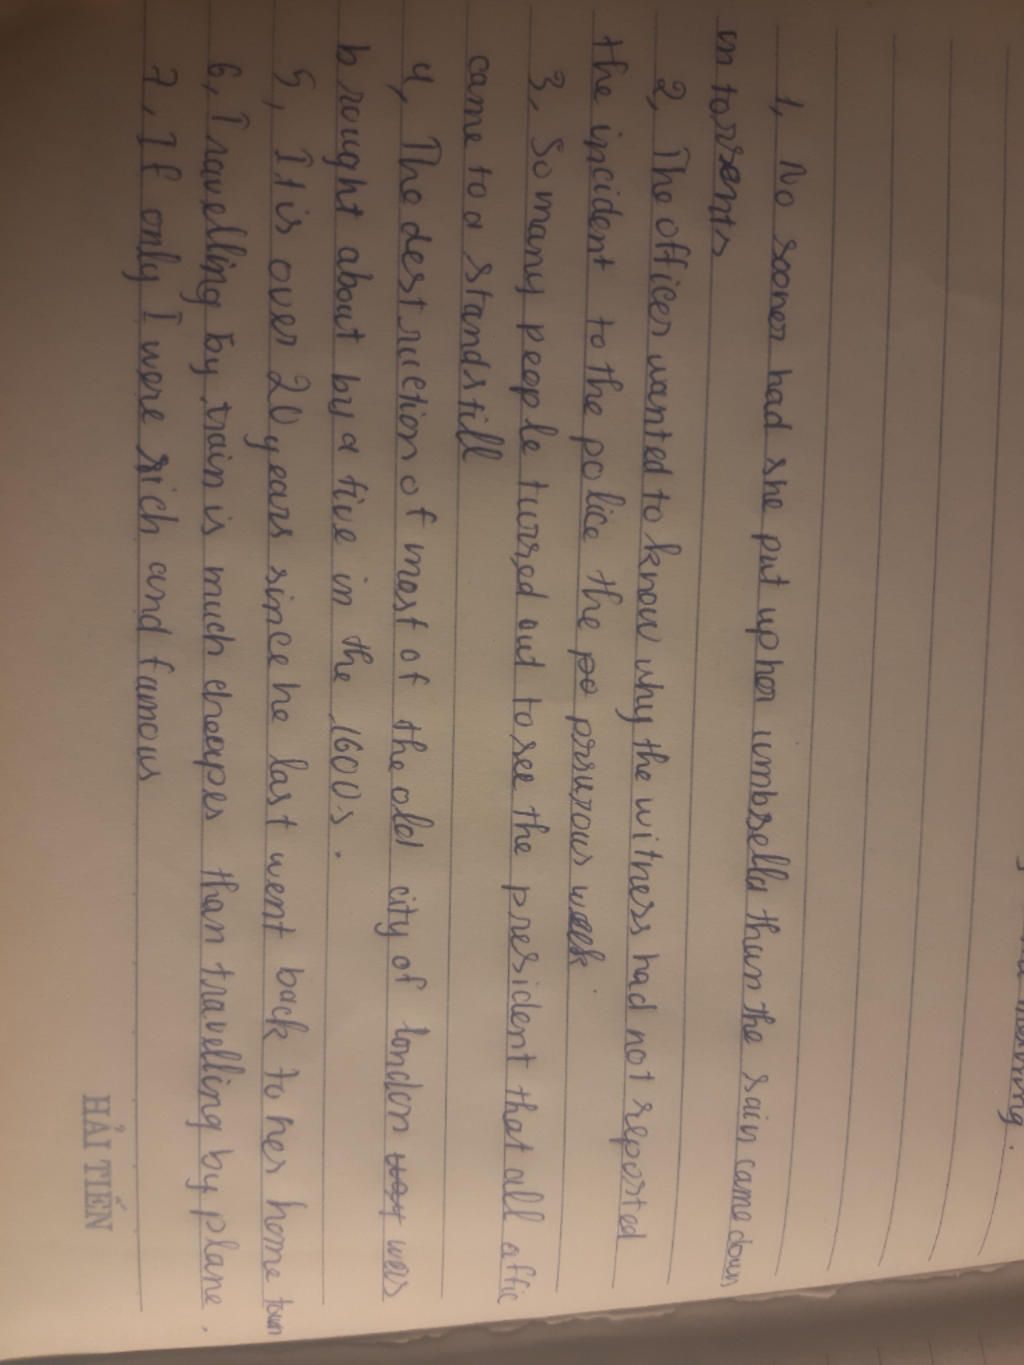 meaning.
1, No sooner had she put up her umbrella than the rain came down
in torrents
2, The officer wanted to know why the witness had not reported
the incident to the police the previous week.
3, So many people turned out to see the president that all affic
came to a standstill
4, The destruction of most of the old city of london was
brought about by a fire in the 1600s.
5, It is over 20 years since he last went back to her home town
6, Travelling by train is much cheaper than travelling by plane.
7, If only I were rich and famous
HẢI TIẾN